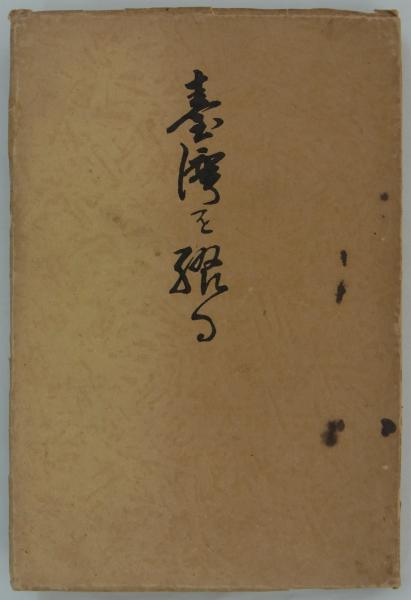 臺灣を綴る